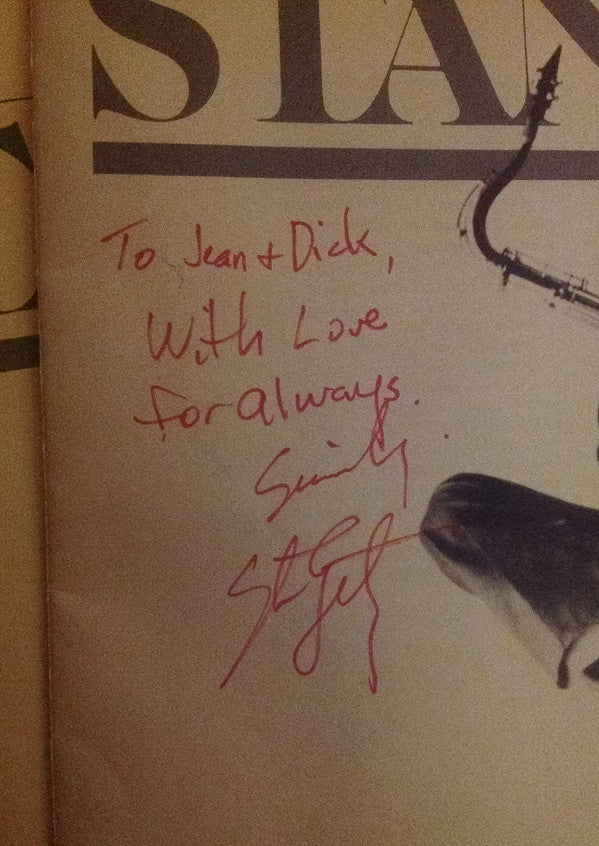 STAN
To Jean + Dick,
With Love
for always.
Sincerely
Stan Getz